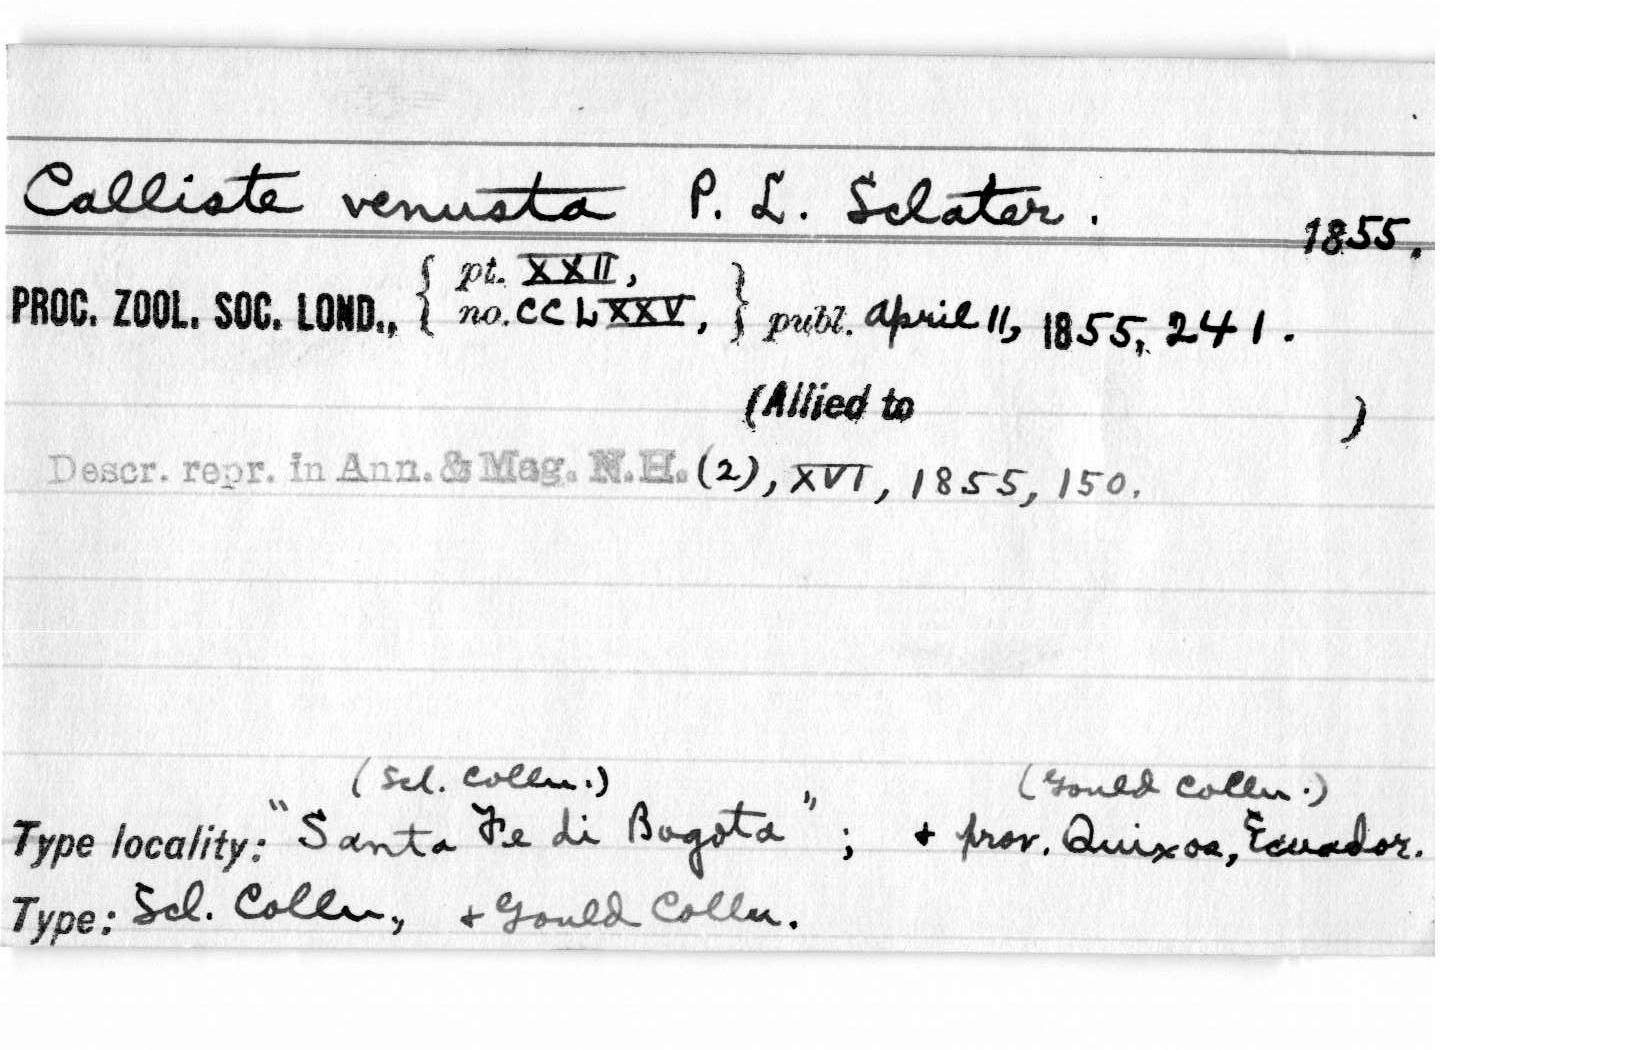 Calliste venusta P. L. Sclater.
1855.
PROC. ZOOL. SOC. LOND., { pt. XXII, no. CCLXXV, } publ. April 11, 1855, 241.
(Allied to )
Descr. repr. in Ann. & Mag. N.H. (2), XVI, 1855, 150.
(Scl. Colln.) (Gould Colln.)
Type locality: "Santa Fe di Bogota"; + prov. Quixos, Ecuador.
Type: Scl. Colln., + Gould Colln.